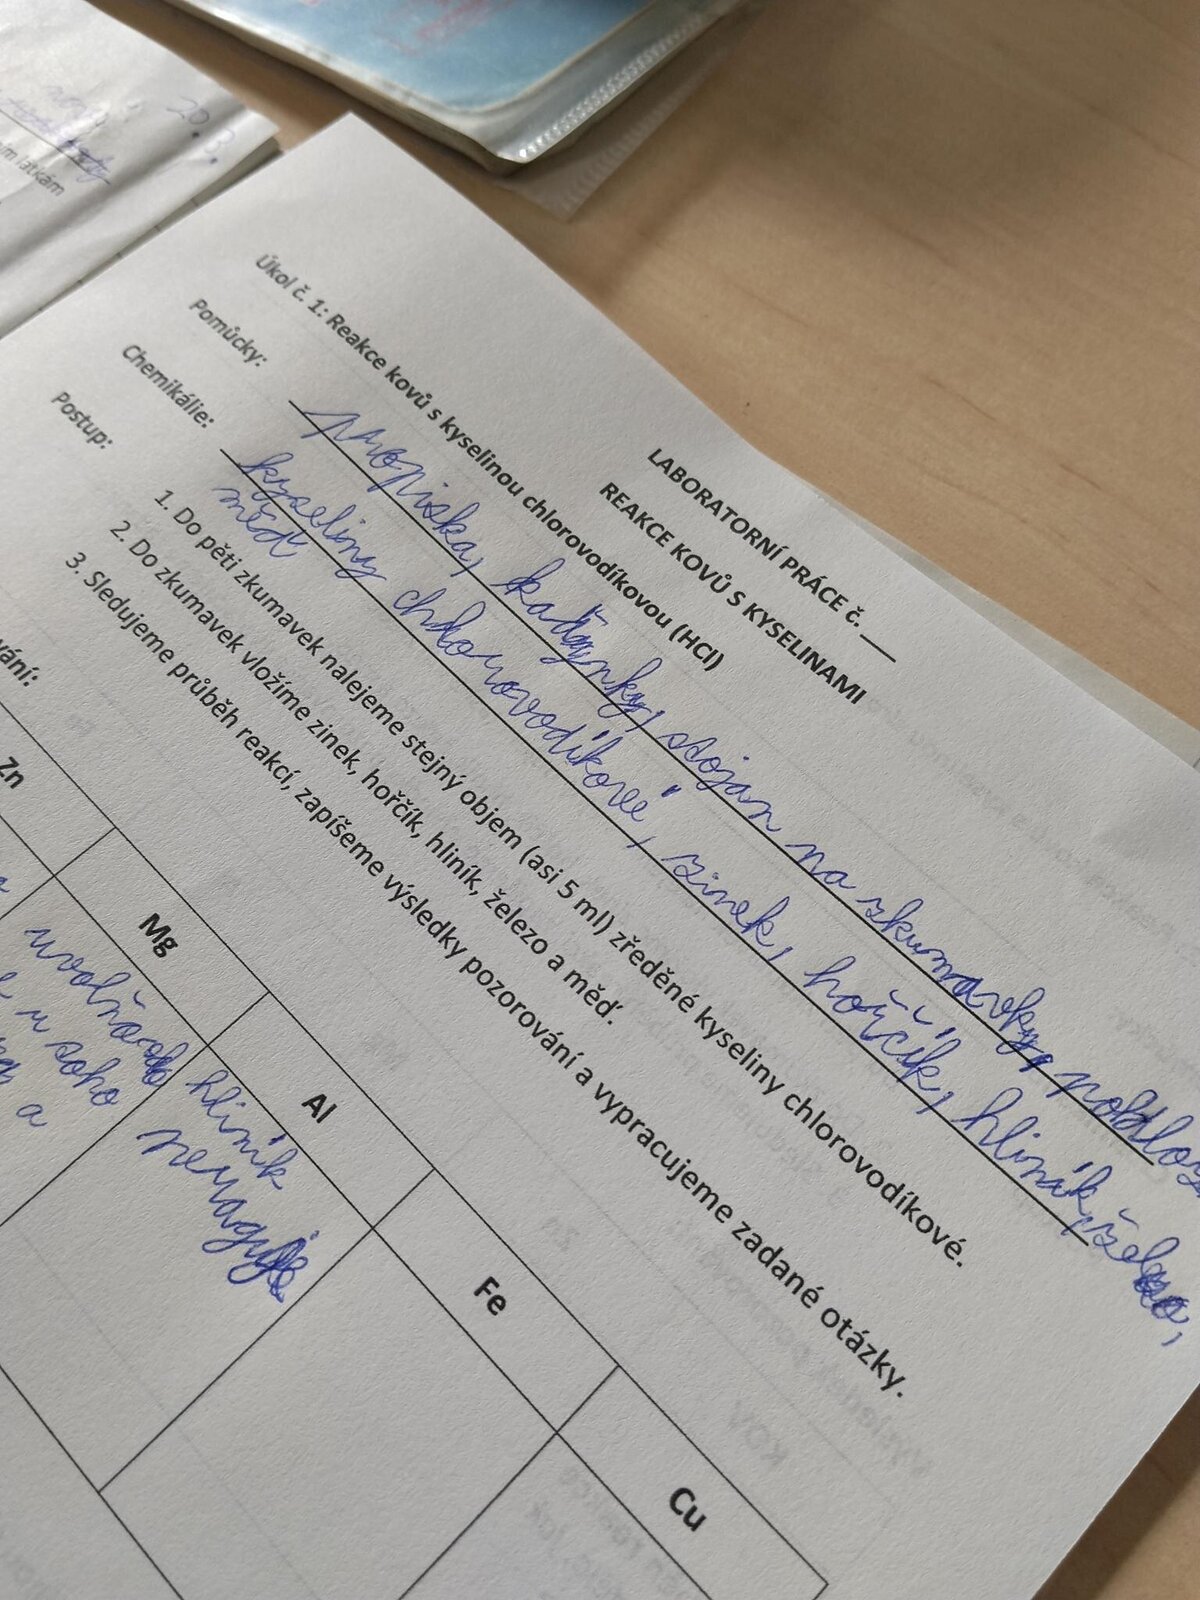 20.3.
látkám
LABORATORNÍ PRÁCE č.___
REAKCE KOVŮ S KYSELINAMI
Úkol č. 1: Reakce kovů s kyselinou chlorovodíkovou (HCl)
Pomůcky: propiska, kádinky, stojan na zkumavky,
Chemikálie: kyseliny chlorovodíkové, zinek, hořčík, hliník, železo,
měď
Postup:
1. Do pěti zkumavek nalejeme stejný objem (asi 5 ml) zředěné kyseliny chlorovodíkové.
2. Do zkumavek vložíme zinek, hořčík, hliník, železo a měď.
3. Sledujeme průběh reakcí, zapíšeme výsledky pozorování a vypracujeme zadané otázky.
Zn
Mg
Al
Fe
Cu
a
hliník
nereaguje